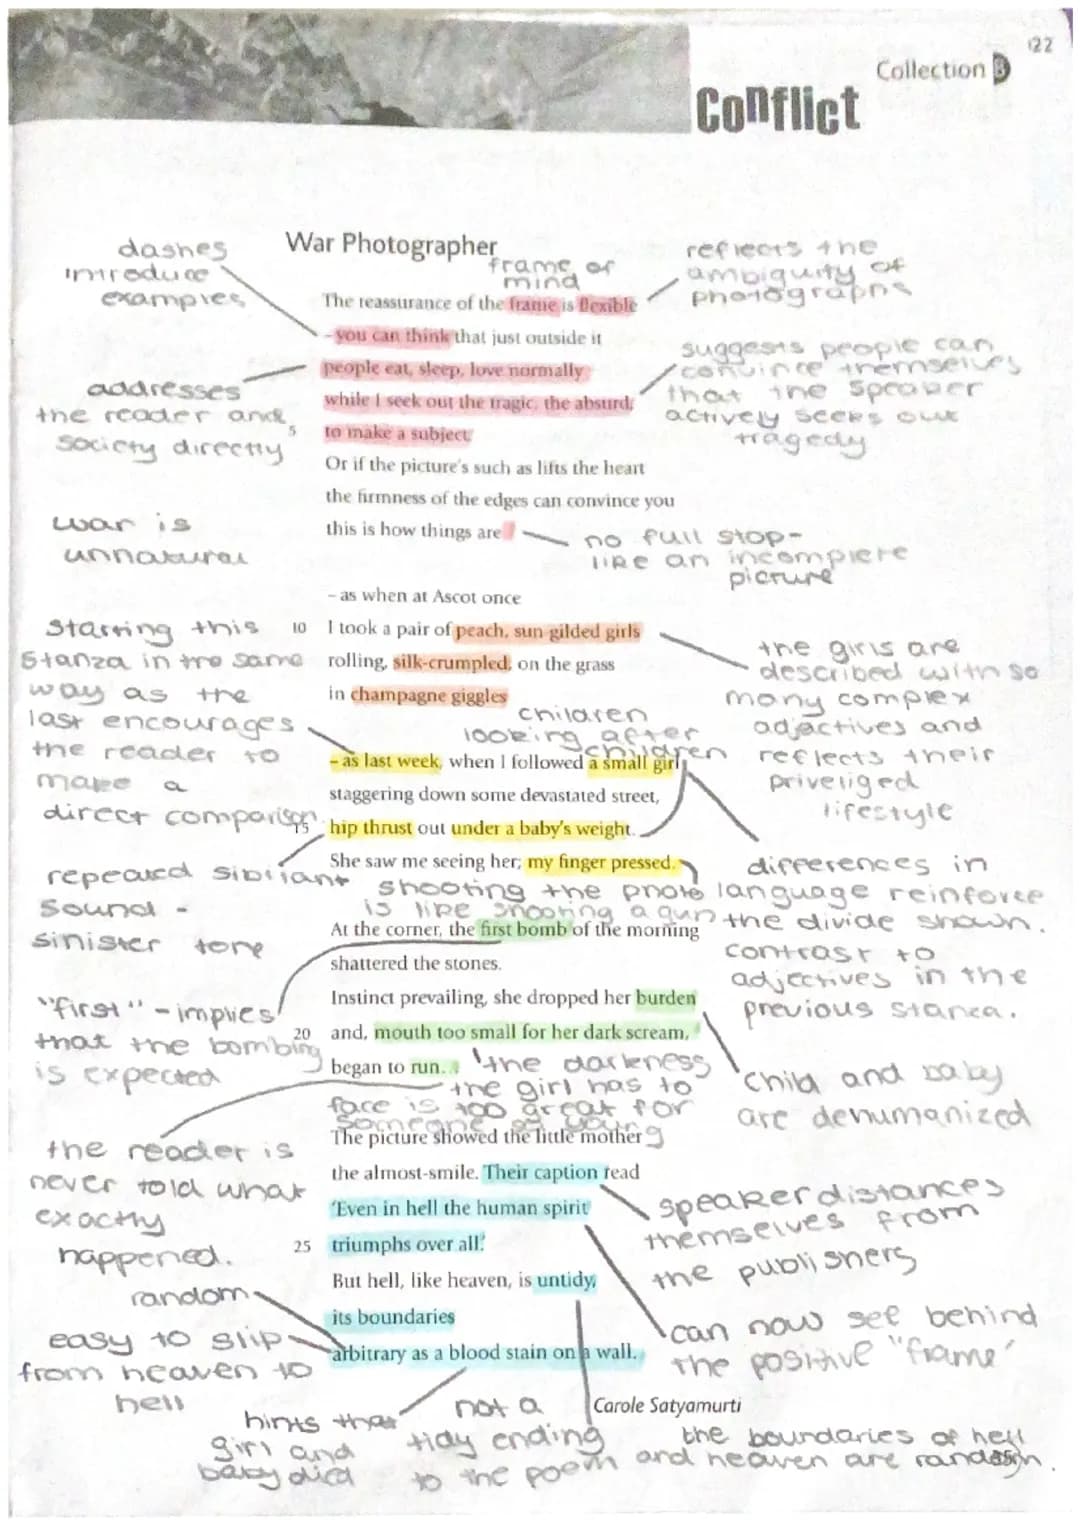 122
Collection B
Conflict
War Photographer
dashes
introduce
examples
frame of
mind
reflects the
ambiguity of
photographs
The reassurance of the frame is flexible
– you can think that just outside it
people eat, sleep, love normally
while I seek out the tragic, the absurd,
5 to make a subject.
Or if the picture's such as lifts the heart
the firmness of the edges can convince you
this is how things are
addresses
the reader and
society directly
suggests people can
convince themselves
that the speaker
actively seeks out
tragedy
war is
unnatural
no full stop-
like an incomplete
picture
– as when at Ascot once
10 I took a pair of peach, sun-gilded girls
rolling, silk-crumpled, on the grass
in champagne giggles
starting this
stanza in the same
way as the
last encourages
the reader to
make a
direct comparison
the girls are
described with so
many complex
adjectives and
reflects their
priveliged
lifestyle
children
looking after
children
– as last week, when I followed a small girl
staggering down some devastated street,
15 hip thrust out under a baby's weight.
She saw me seeing her; my finger pressed.
repeated sibilant
sound -
sinister tone
shooting the photo
is like shooting a gun
differences in
language reinforce
the divide shown.
contrast to
adjectives in the
previous stanza.
At the corner, the first bomb of the morning
shattered the stones.
Instinct prevailing, she dropped her burden
20 and, mouth too small for her dark scream,
began to run...
"first" - implies
that the bombing
is expected
the darkness
the girl has to
face is too great for
someone so young
child and baby
are dehumanized
The picture showed the little mother
the almost-smile. Their caption read
'Even in hell the human spirit
25 triumphs over all.'
But hell, like heaven, is untidy,
its boundaries
arbitrary as a blood stain on a wall.
the reader is
never told what
exactly
happened.
speaker distances
themselves from
the publishers
random
easy to slip
from heaven to
hell
can now see behind
the positive "frame"
Carole Satyamurti
hints that
girl and
baby died
not a
tidy ending
to the poem
the boundaries of hell
and heaven are random.